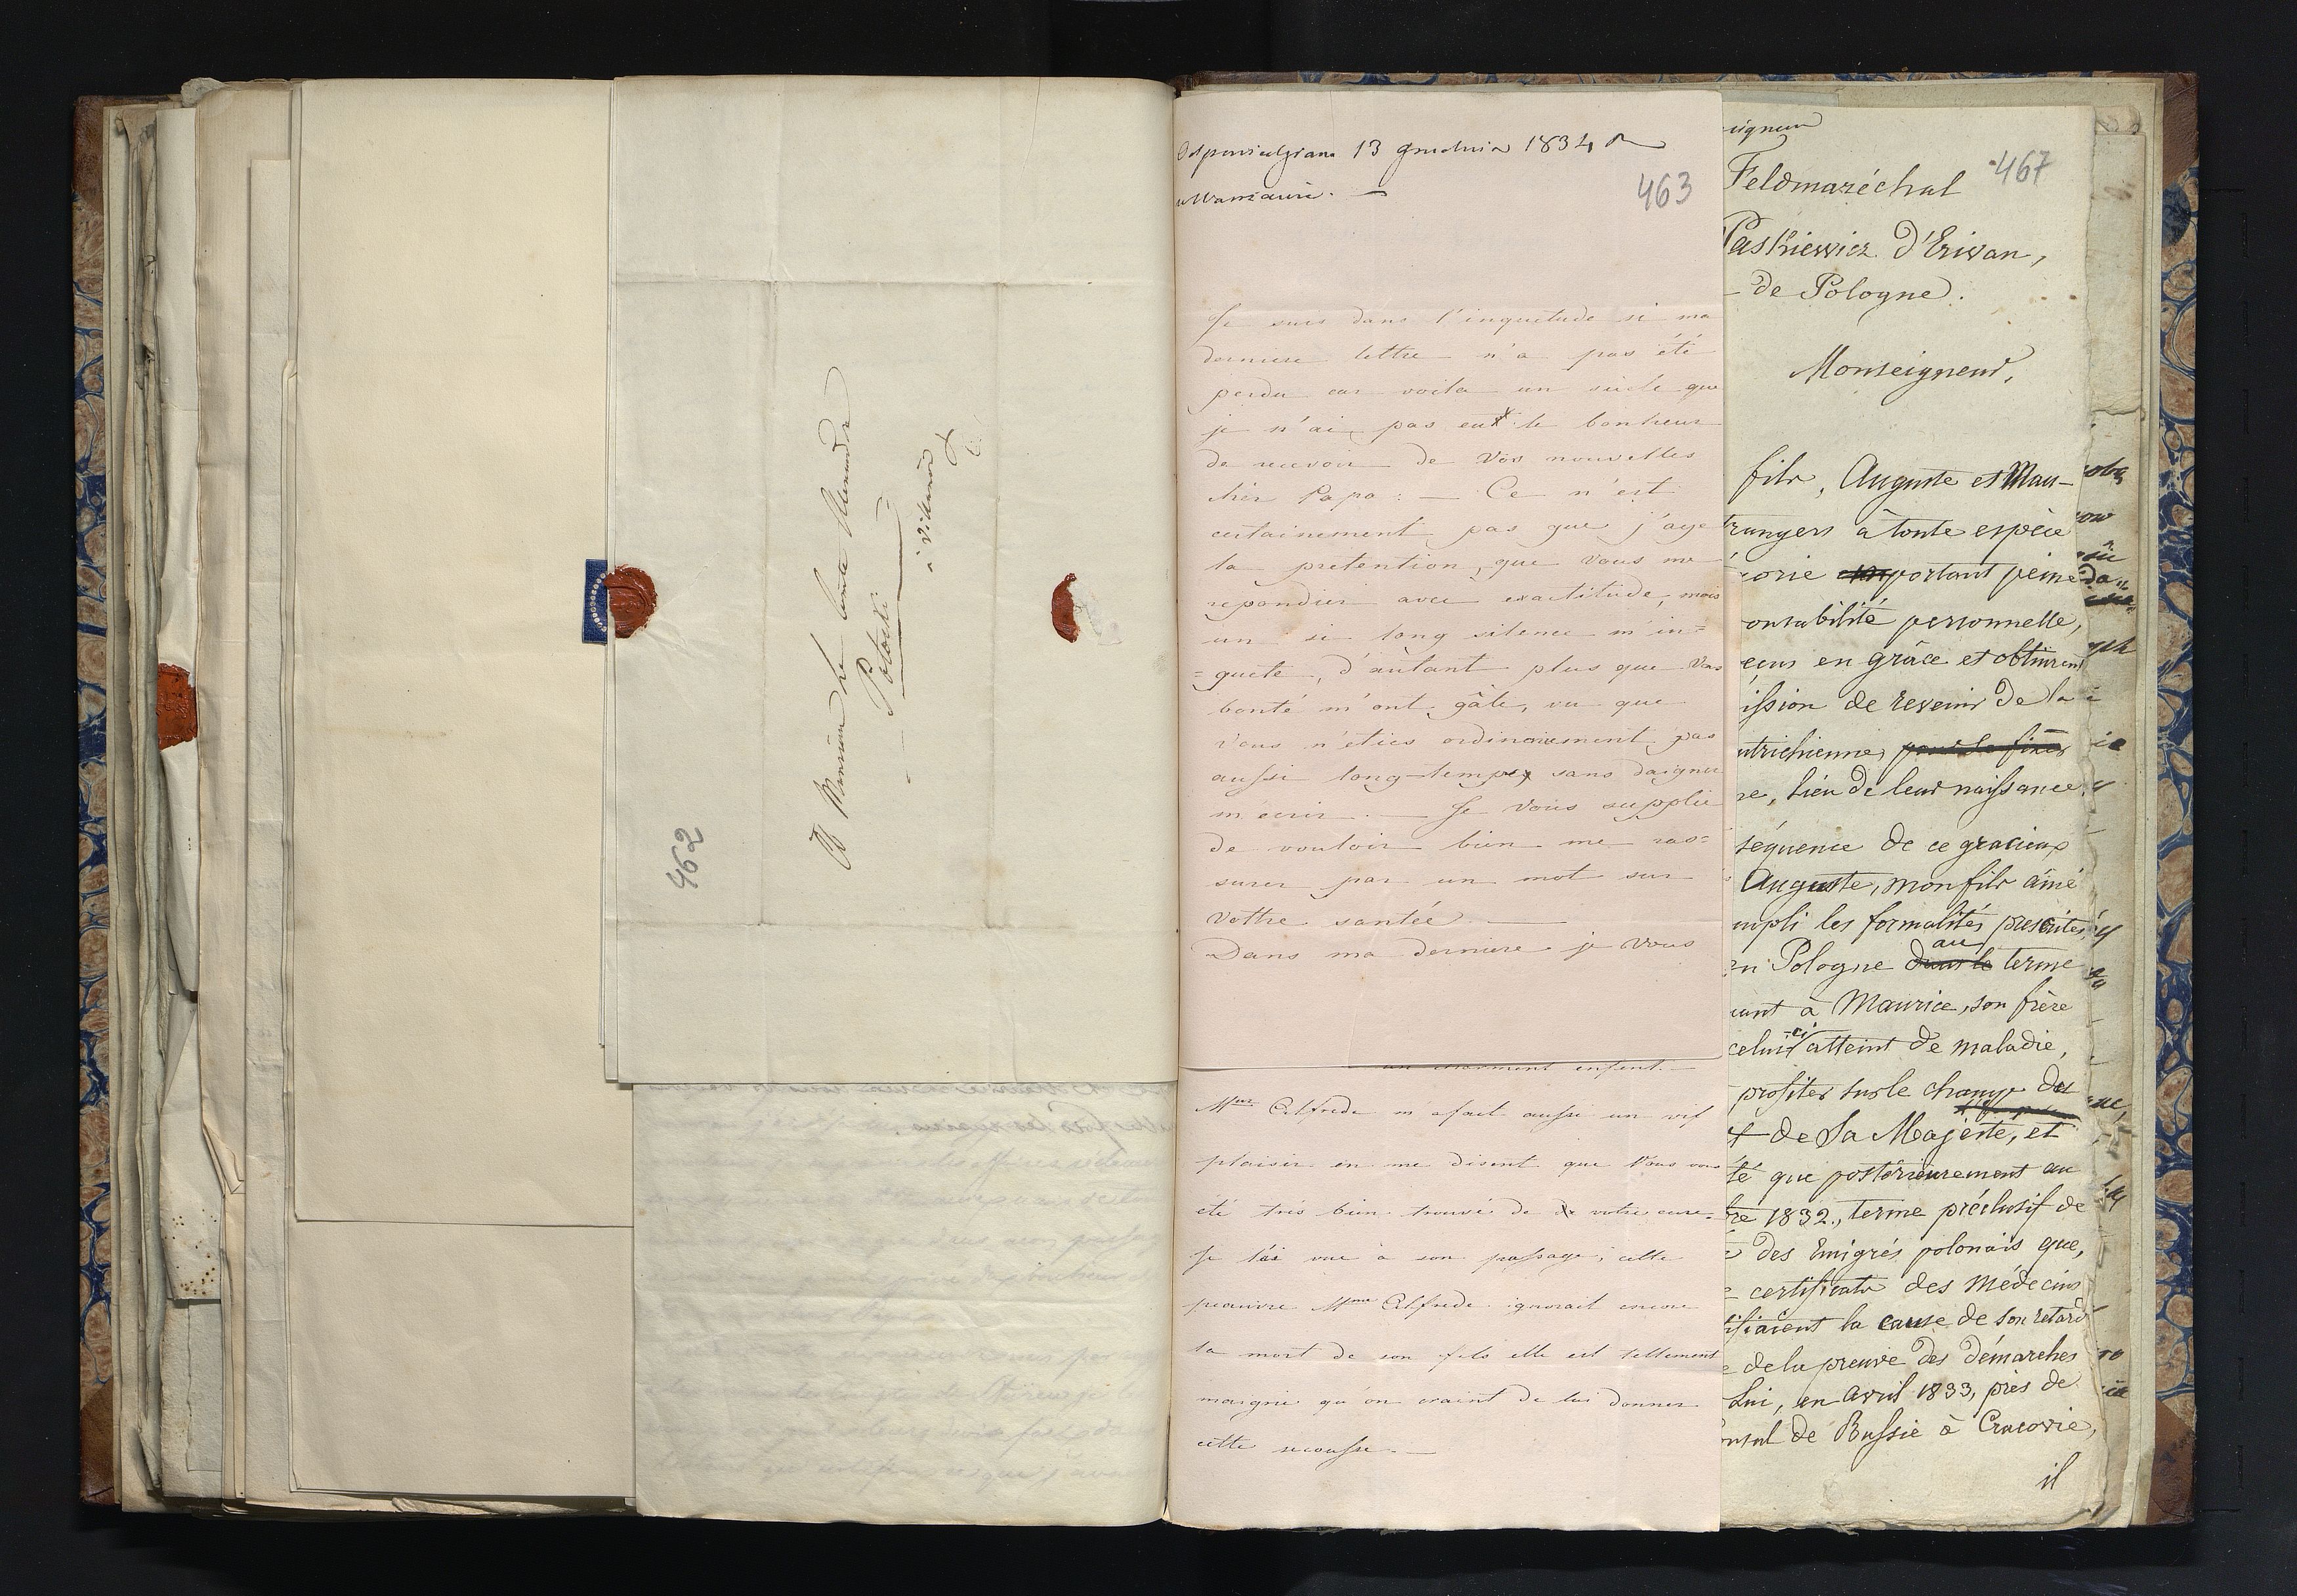 462
à Monsieur le Comte Alexandre
Potocki
à Villanov
Odpowiedziano 13 grudnia 1834 r
w Warszawie. —
463
Je suis dans l'inquetude si ma
derniere lettre n'a pas été
perdu car voila un siècle que
je n'ai pas eu le bonheur
de recevoir de Vos nouvelles
cher Papa: — Ce n'est
certainement pas que j'aye
la pretention, que Vous me
repondier avec exactitude, mais
un si long silence m'in=
=quete, d'autant plus que Vos
bonté m'ont gâte, vu que
Vous n'eties ordinairement pas
aussi long-temps sans daigner
m'ecrir. — Je Vous supplie
de vouloir bien me ras=
surer par un mot sur
Vottre santée. —
Dans ma derniere je Vous
un charment enfent. —
Mme Alfrede m'a fait aussi un vif
plaisir en me disent que Vous vous
été tres bien trouvé de votre cure.
Je l'ai vue à son passage, cette
pauvre Mme Alfrede ignorait encore
la mort de son fils elle est tellement
maigrie qu'on craint de lui donner
cette secousse. —
467
eigneur
Feldmaréchal
Paskiewicz d'Erivan,
de Pologne.
Monseigneur,
fils, Auguste et Mau-
trangers à toute espèce
gorie portant peine
onsabilité personnelle,
eçus en grâce et obtinrent
ission de revenir de la
utrichienne, pour se fixer
re, lieu de leur naissance.
séquence de ce gracieux
Auguste, mon fils aîné
mpli les formalités prescrites,
en Pologne dans le au terme
uant à Maurice, son frère
celui-ci atteint de maladie,
profiter sur le champ des
t de Sa Majesté, et
té que postérieurement au
bre 1832., terme préclusif de
des Emigrés polonais que,
certificats des Médecins
ifiaient la cause de son retard
de la preuve des démarches
Lui, en Avril 1833, près de
onsul de Russie à Cracovie,
il